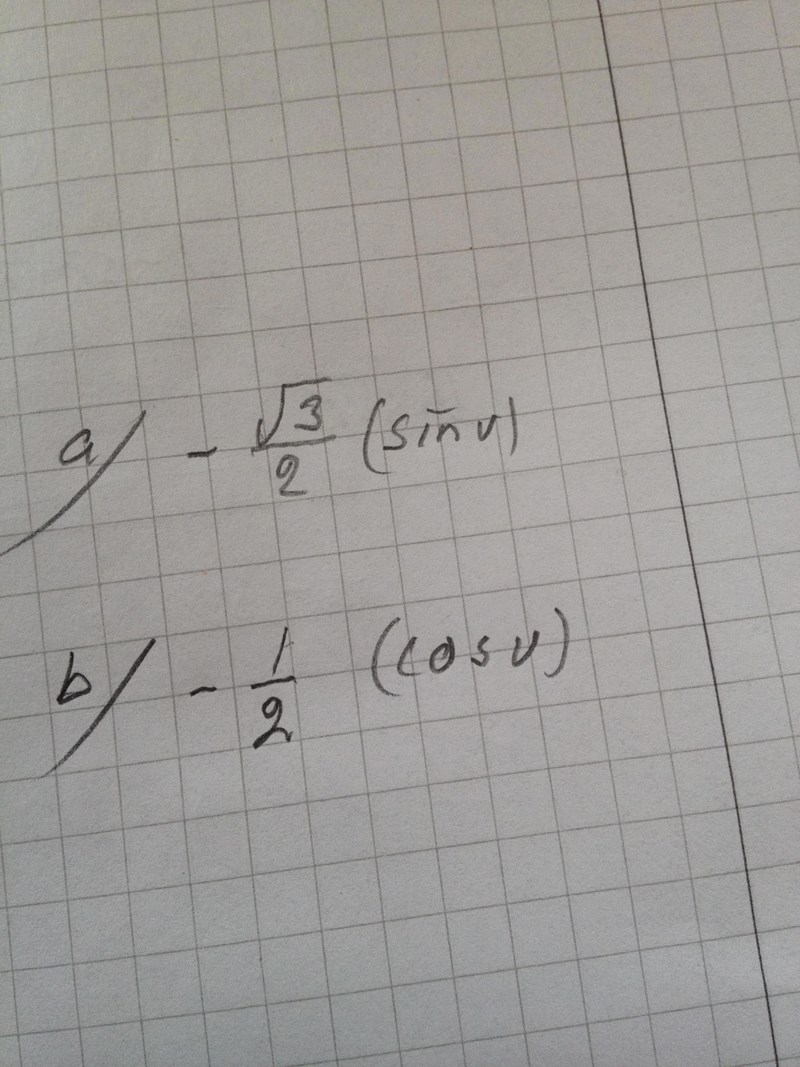 a) -√3/2 (sin v)
b) -1/2 (cos v)